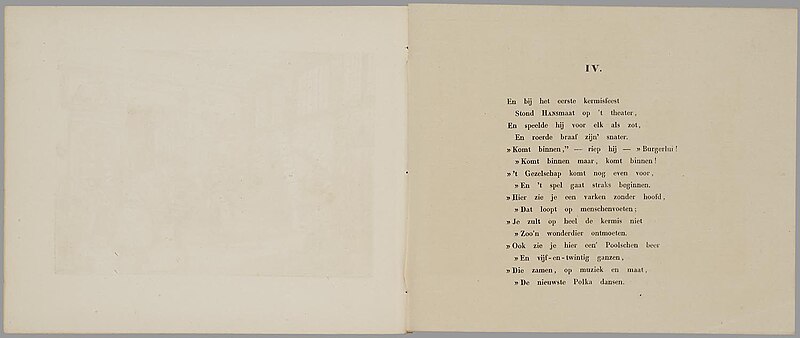 IV.
En bij het eerste kermisfeest
Stond HANSmaat op 't theater,
En speelde hij voor elk als zot,
En roerde braaf zijn' snater.
» Komt binnen," — riep hij — » Burgerlui!
» Komt binnen maar, komt binnen!
» 't Gezelschap komt nog even voor,
» En 't spel gaat straks beginnen.
» Hier zie je een varken zonder hoofd,
» Dat loopt op menschenvoeten;
» Je zult op heel de kermis niet
» Zoo'n wonderdier ontmoeten.
» Ook zie je hier een' Poolschen beer
» En vijf-en-twintig ganzen,
» Die zamen, op muziek en maat,
» De nieuwste Polka dansen.